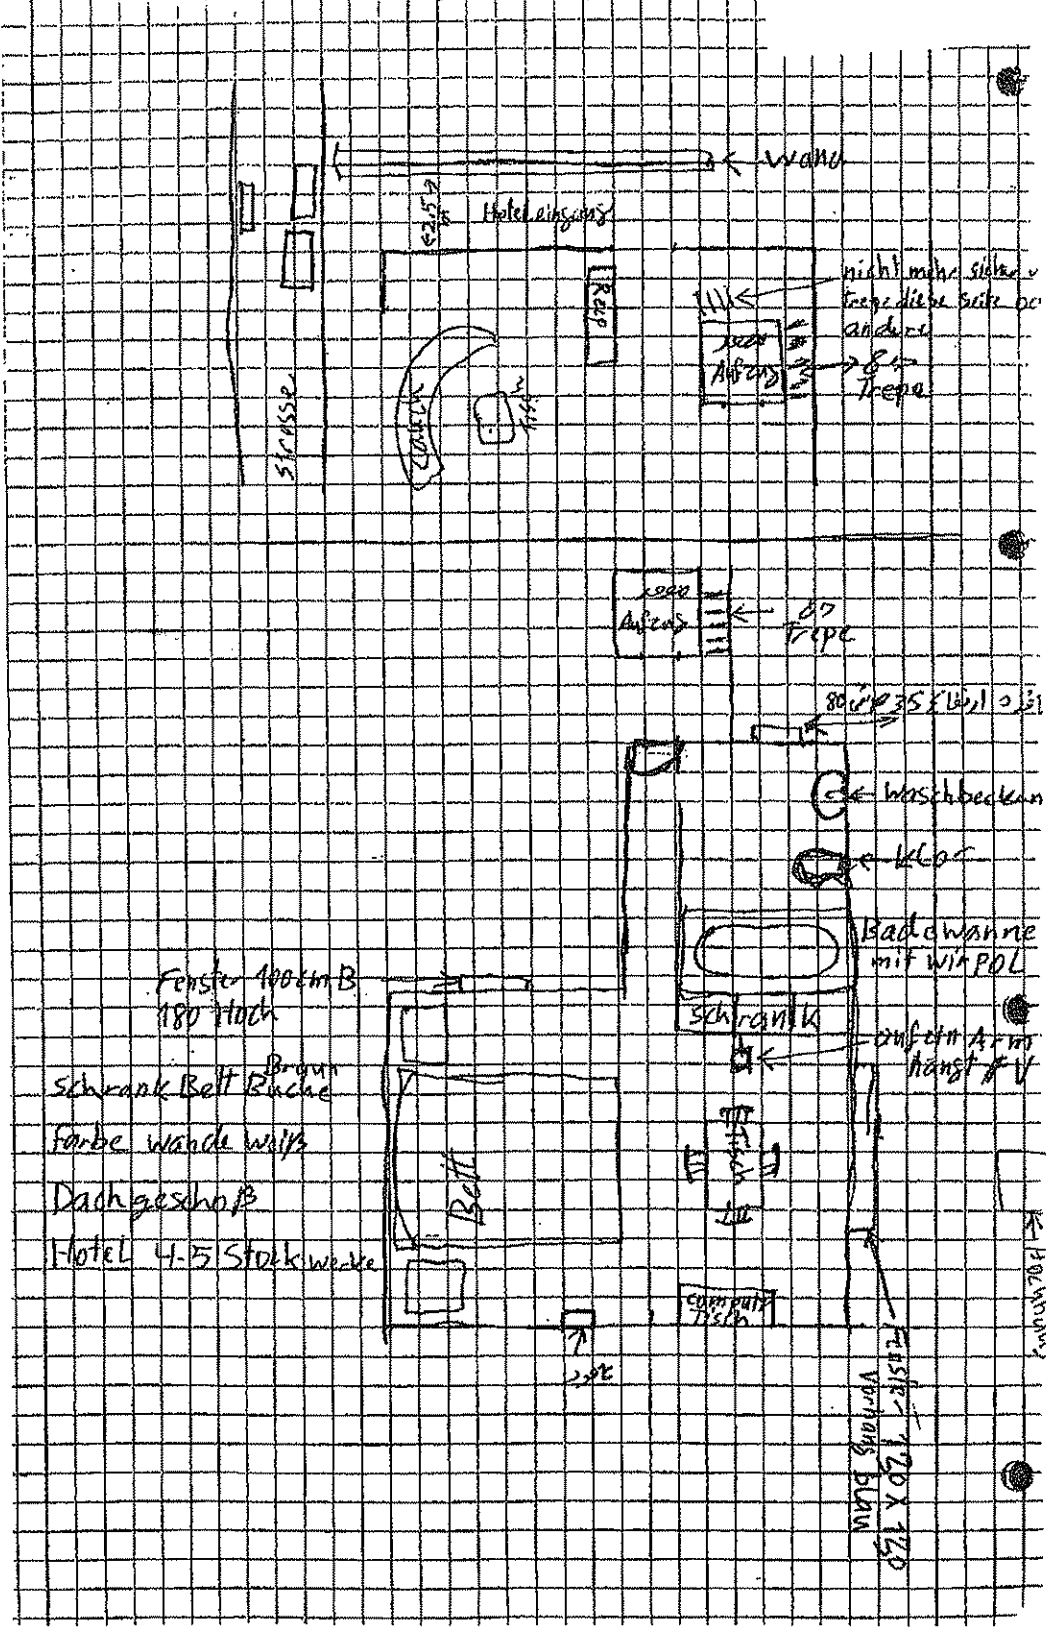 Wand
2,5
m
Hoteleingang
Strasse
Rezp
Tisch
nicht mehr sicher
trepe diese Seite
andere
Aufzug
Trepe
Aufzug
Trepe
80 عرض 35 ارتفاع
Waschbecken
Klo
Badewanne
mit wirPOL
Schrank
auf ein Arm
hängt TV
Fenster 100cm B
180 Hoch
Braun
Schrank Bett Buche
farbe wande weiß
Dachgeschoß
Hotel 4-5 Stockwerke
Bett
Tisch
computer
Tisch
Fenster 120 x 120
Vorhang blau